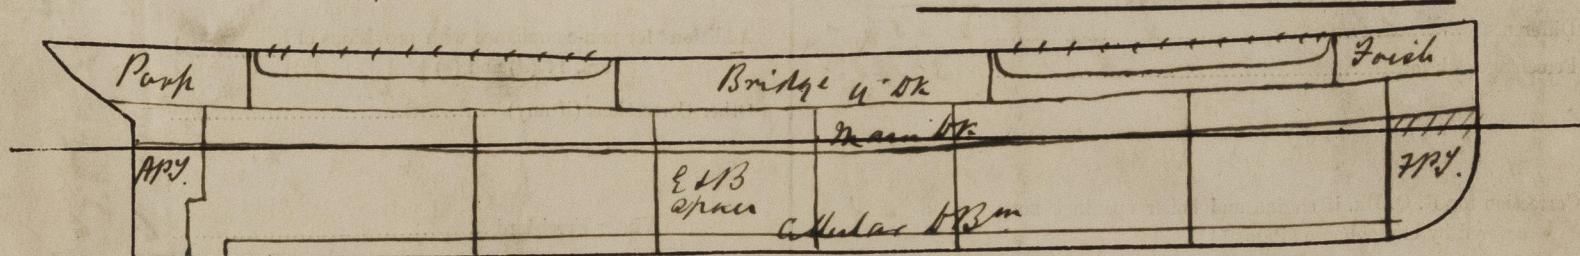 Poop
Bridge
U Dk
Focsle
Main Dk
APT.
E & B
space
FPT.
Cellular D Bm